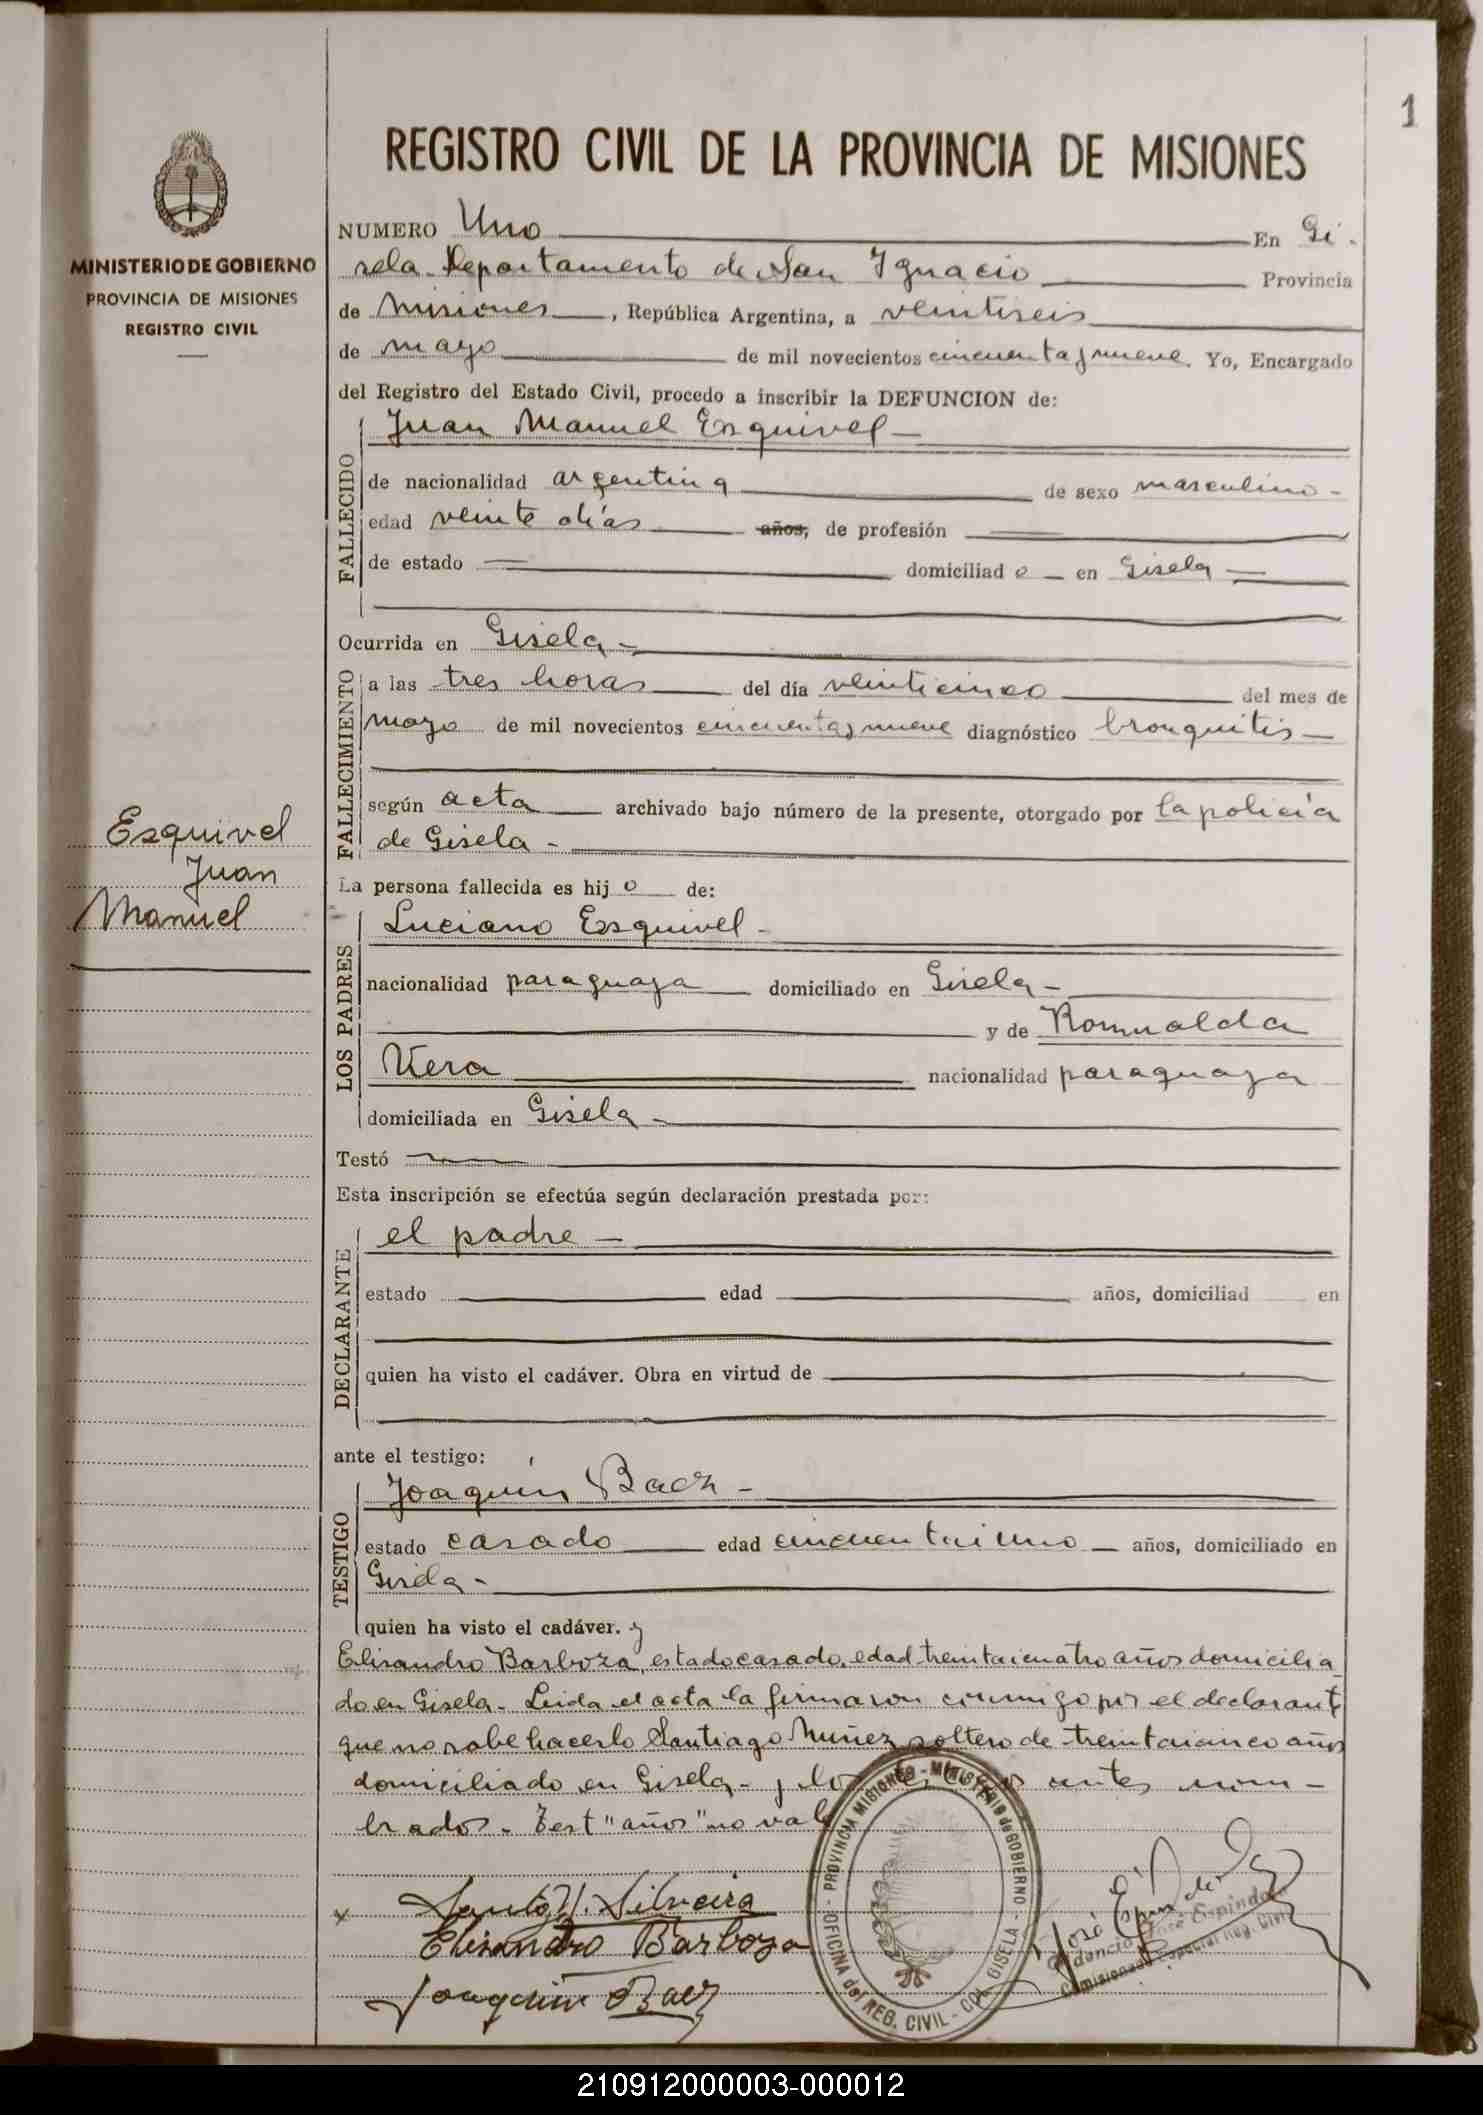 1
REGISTRO CIVIL DE LA PROVINCIA DE MISIONES
MINISTERIO DE GOBIERNO
PROVINCIA DE MISIONES
REGISTRO CIVIL
NUMERO Uno En Gi-
sela Departamento de San Ignacio Provincia
de Misiones, República Argentina, a veintiseis
de mayo de mil novecientos cincuenta y nueve. Yo, Encargado
del Registro del Estado Civil, procedo a inscribir la DEFUNCION de:
FALLECIDO
Juan Manuel Esquivel
de nacionalidad argentina de sexo masculino
edad veinte días años, de profesión
de estado domiciliad o en Gisela
Ocurrida en Gisela
FALLECIMIENTO
a las tres horas del día veinticinco del mes de
mayo de mil novecientos cincuenta y nueve diagnóstico bronquitis
según acta archivado bajo número de la presente, otorgado por la policía
de Gisela
Esquivel
Juan
Manuel
La persona fallecida es hij o de:
LOS PADRES
Luciano Esquivel
nacionalidad paraguaya domiciliado en Gisela
y de Romualda
Vera nacionalidad paraguaya
domiciliada en Gisela
Testó
Esta inscripción se efectúa según declaración prestada por:
DECLARANTE
el padre
estado edad años, domiciliad en
quien ha visto el cadáver. Obra en virtud de
ante el testigo:
TESTIGO
Joaquín Baez
estado casado edad cincuentaiuno años, domiciliado en
Gisela
quien ha visto el cadáver. y
Elisandro Barboza, estado casado, edad treintaicuatro años domicilia
do en Gisela. Leida el acta la firmaron conmigo por el declarant
que no sabe hacerlo Santiago Nuñez soltero de treintaicinco años
domiciliado en Gisela - y los testigos antes nom-
brados. Test "años" no vale
Silveira
Elisandro Barboza
Joaquin Baez
PROVINCIA MISIONES - MINISTERIO de GOBIERNO
OFICINA del REG. CIVIL - COL. GISELA
José Espíndola
José Espíndola
Comisionado Especial Reg. Civil
210912000003-000012